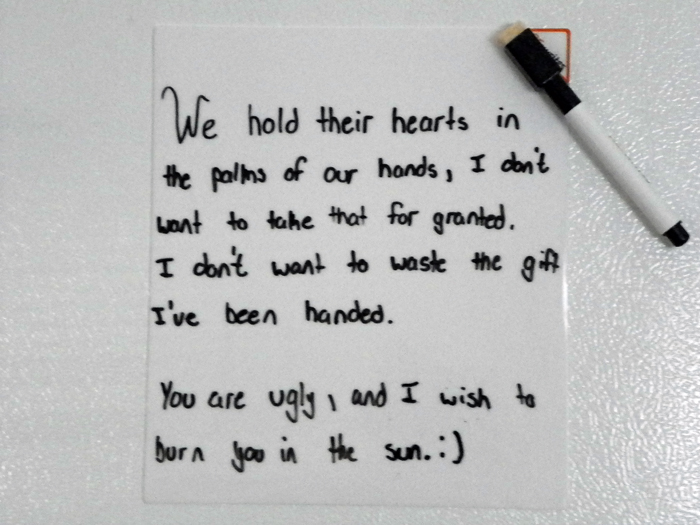 We hold their hearts in
the palms of our hands, I don't
want to take that for granted.
I don't want to waste the gift
I've been handed.
You are ugly, and I wish to
burn you in the sun. :)